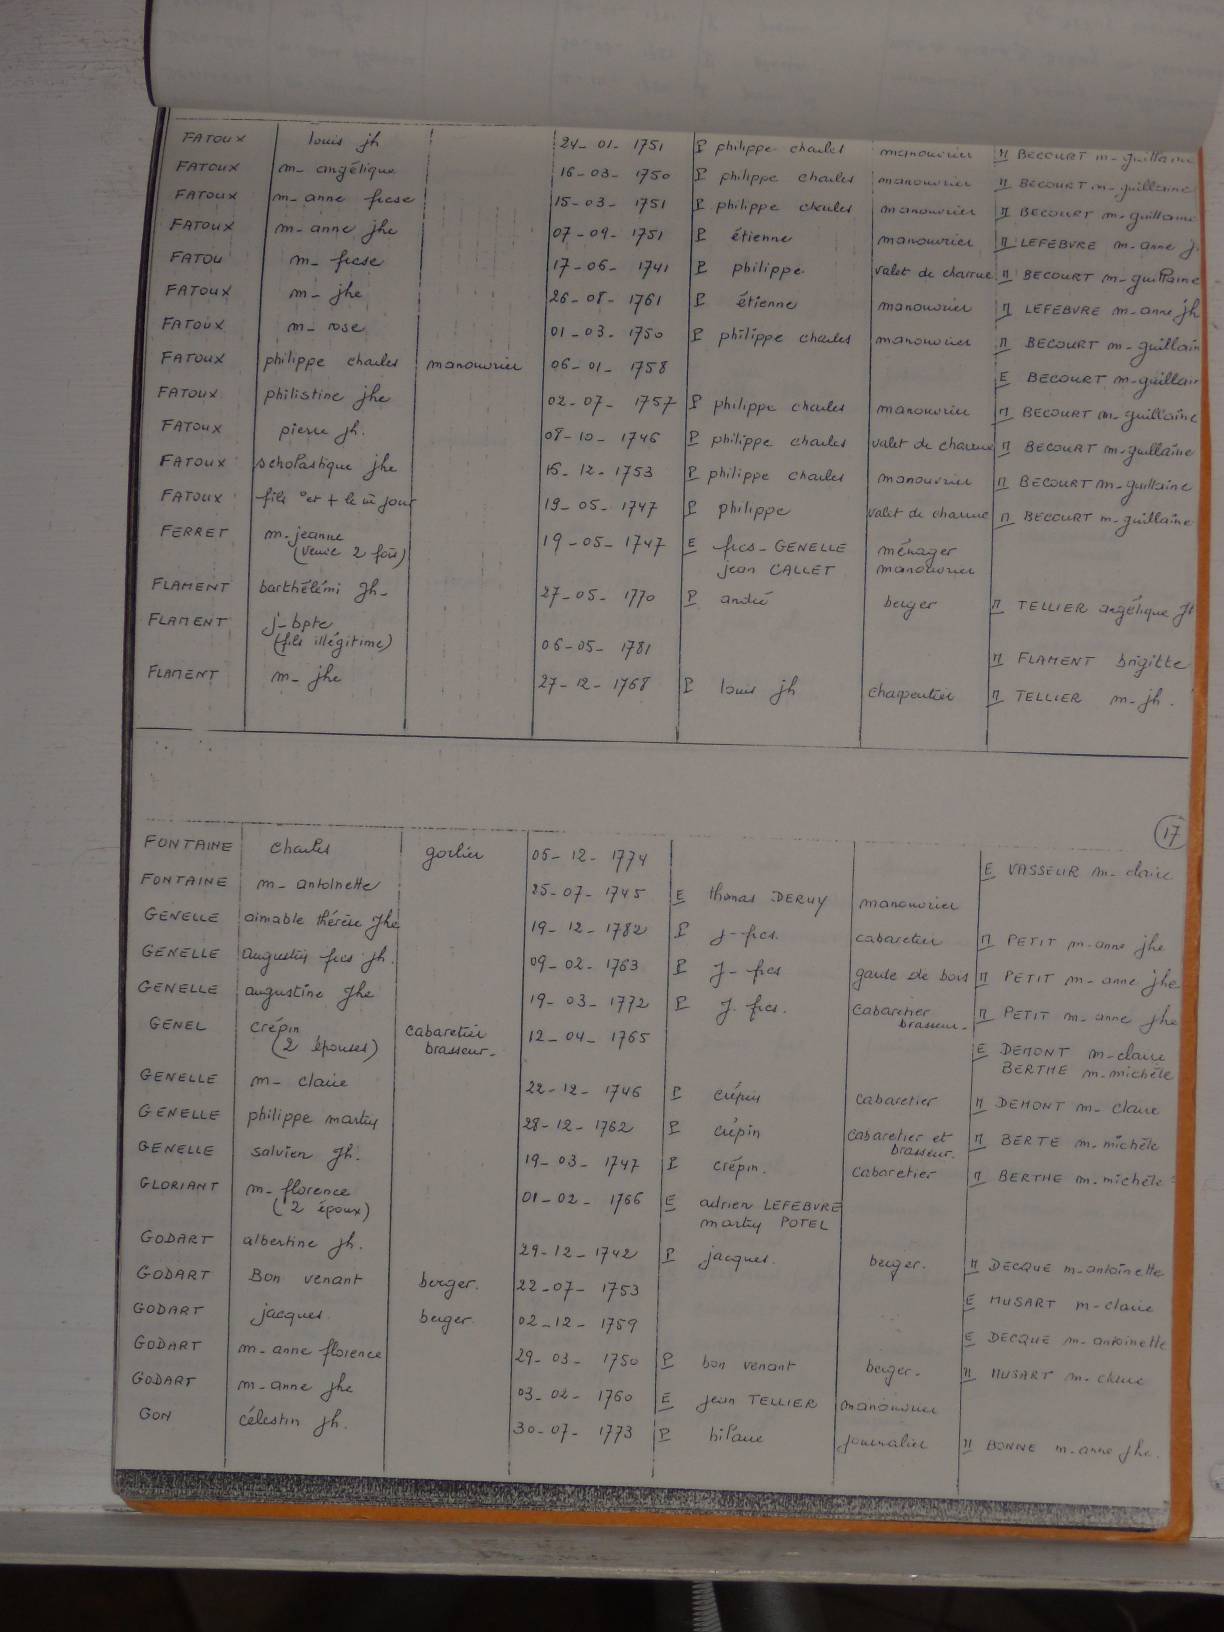 FATOUX louis jh 24-01-1751 P philippe charles manouvrier M BECOURT m-guillaine
FATOUX m-angélique 16-03-1750 P philippe charles manouvrier M BECOURT m-guillaine
FATOUX m-anne frcse 15-03-1751 P philippe charles manouvrier M BECOURT m-guillaine
FATOUX m-anne jhe 07-09-1751 P étienne manouvrier M LEFEBVRE m-anne j
FATOU m-frcse 17-06-1741 P philippe valet de charrue M BECOURT m-guillaine
FATOUX m-jhe 26-08-1761 P étienne manouvrier M LEFEBVRE m-anne jh
FATOUX m-rose 01-03-1750 P philippe charles manouvrier M BECOURT m-guillain
FATOUX philippe charles manouvrier 06-01-1758 E BECOURT m-guillain
FATOUX philistine jhe 02-07-1757 P philippe charles manouvrier M BECOURT m-guillaine
FATOUX pierre jh. 08-10-1746 P philippe charles valet de charrue M BECOURT m-guillaine
FATOUX scholastique jhe 16-12-1753 P philippe charles manouvrier M BECOURT m-guillaine
FATOUX fils °et + le m̂ jour 19-05-1747 P philippe valet de charrue M BECOURT m-guillaine
FERRET m-jeanne 19-05-1747 E frcs-GENELLE ménager
(veuve 2 fois) jean CALLET manouvrier
FLAMENT barthélémi jh- 27-05-1770 P andré berger M TELLIER angélique jh
FLAMENT j-bpte
(fils illégitime) 06-05-1781 M FLAMENT brigitte
FLAMENT m-jhe 27-12-1768 P louis jh charpentier M TELLIER m-jh.
17
FONTAINE charles gorlier 05-12-1774 E VASSEUR m-claire
FONTAINE m-antoinette 25-07-1745 E thomas DERUY manouvrier
GENELLE aimable thérèse jhe 19-12-1782 P j-frcs. cabaretier M PETIT m-anne jhe
GENELLE augustin frcs jh. 09-02-1763 P J-frcs garde de bois M PETIT m-anne jhe
GENELLE augustine jhe 19-03-1772 P J.frcs. cabaretier brasseur- M PETIT m-anne jhe
GENEL crépin cabaretier 12-04-1765 E DEMONT m-claire
(2 épouses) brasseur- BERTHE m-michèle
GENELLE m-claire 22-12-1746 P crépin cabaretier M DEMONT m-claire
GENELLE philippe martin 28-12-1762 P crépin cabaretier et brasseur. M BERTE m.michèle
GENELLE salvien jh. 19-03-1747 P crépin. cabaretier M BERTHE m.michèle
GLORIANT m-florence 01-02-1766 E adrien LEFEBVRE
(2 époux) martin POTEL
GODART albertine jh. 29-12-1742 P jacques. berger. M DECQUE m-antoinette
GODART Bon venant berger. 22-07-1753 E MUSART m-claire
GODART jacques. berger. 02-12-1759 E DECQUE m-antoinette
GODART m-anne florence 29-03-1750 P bon venant berger. M MUSART m-claire
GODART m-anne jhe 03-02-1760 E jean TELLIER manouvrier
GON célestin jh. 30-07-1773 P hilaire journalier M BONNE m-anne jhe.